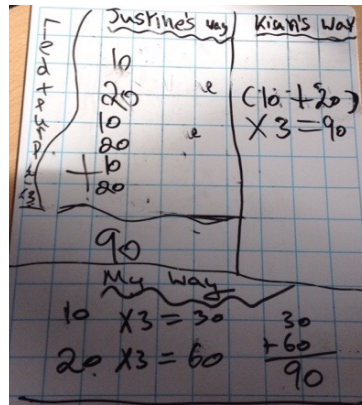 Justine's way
10
20
10
20
+10
20
90
Kian's way
(10 + 20)
x3 = 90
My Way
10 x3 = 30
20 x3 = 60
30
+60
90